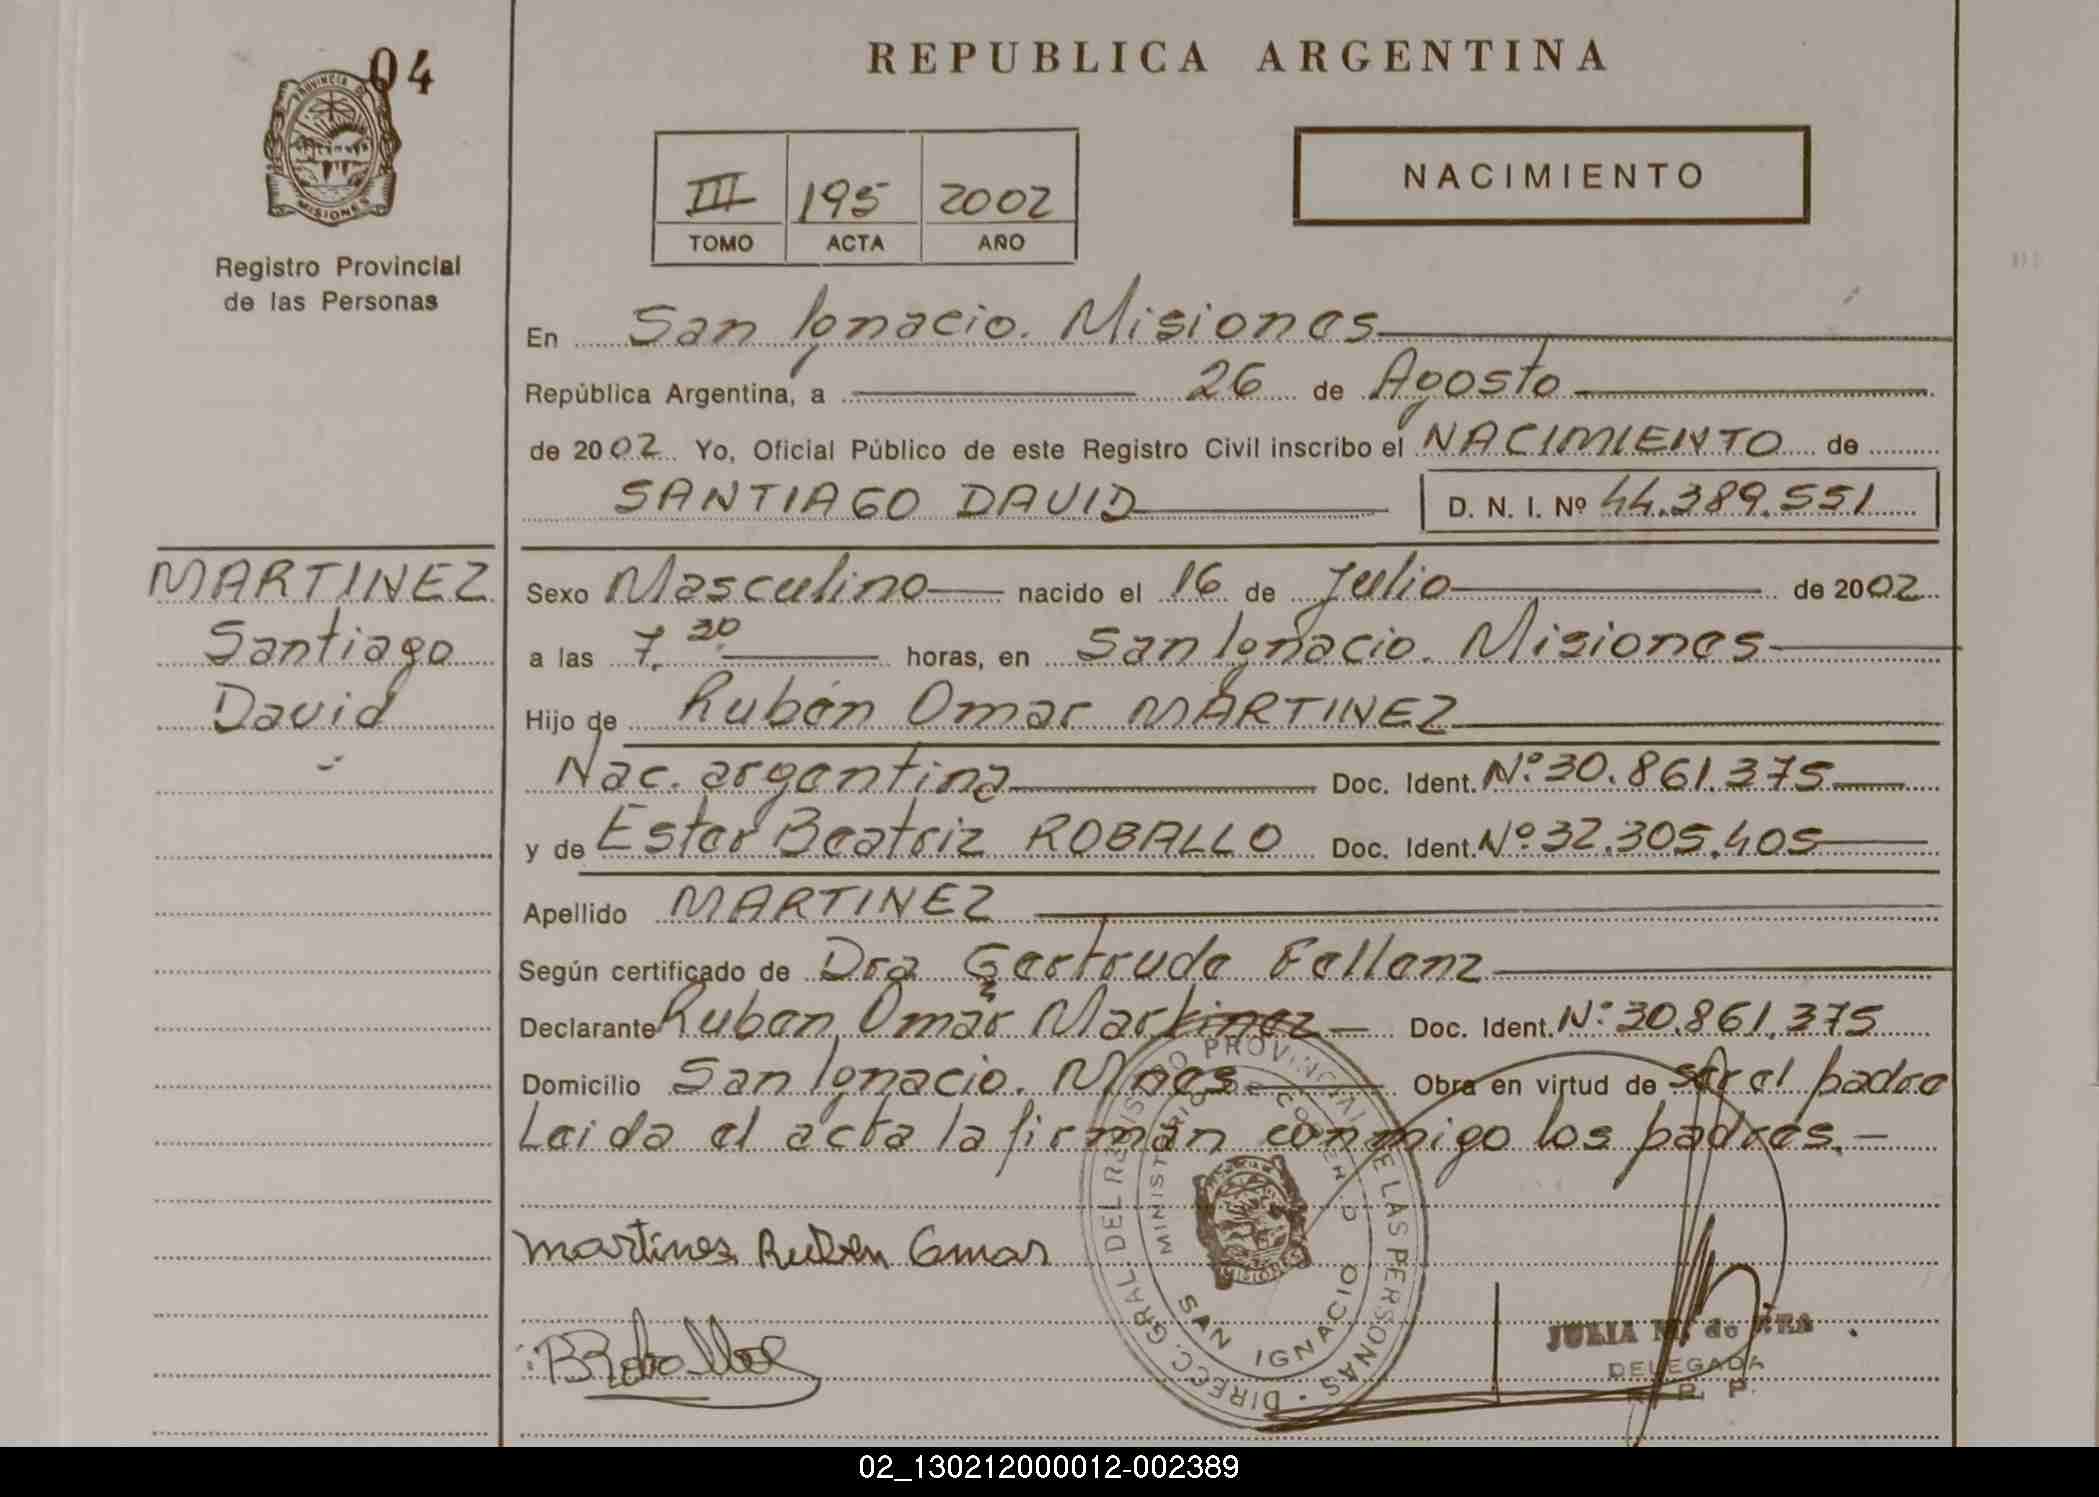 04
PROVINCIA DE
MISIONES
Registro Provincial
de las Personas
REPUBLICA ARGENTINA
III 195 2002
TOMO ACTA AÑO
NACIMIENTO
En San Ignacio. Misiones
República Argentina, a 26 de Agosto
de 2002 Yo, Oficial Público de este Registro Civil inscribo el NACIMIENTO de
SANTIAGO DAVID D. N. I. Nº 44.389.551
MARTINEZ
Santiago
David
Sexo Masculino nacido el 16 de Julio de 2002
a las 7.30 horas, en San Ignacio. Misiones
Hijo de Rubén Omar MARTINEZ
Nac. argentina Doc. Ident. Nº 30.861.375
y de Ester Beatriz ROBALLO Doc. Ident. Nº 32.305.405
Apellido MARTINEZ
Según certificado de Dra Gertrude Fellenz
Declarante Ruben Omar Martinez Doc. Ident. Nº 30.861.375
Domicilio San Ignacio. Mnes Obra en virtud de ser el padre
Leida el acta la firman conmigo los padres.-
Martinez Ruben Omar
BRoballo
DIRECC. GRAL. DEL REGISTRO PROVINCIAL DE LAS PERSONAS
MINISTERIO DE GOBIERNO
SAN IGNACIO
MISIONES
JULIA M. de
DELEGADA
R. P. P.
02_130212000012-002389